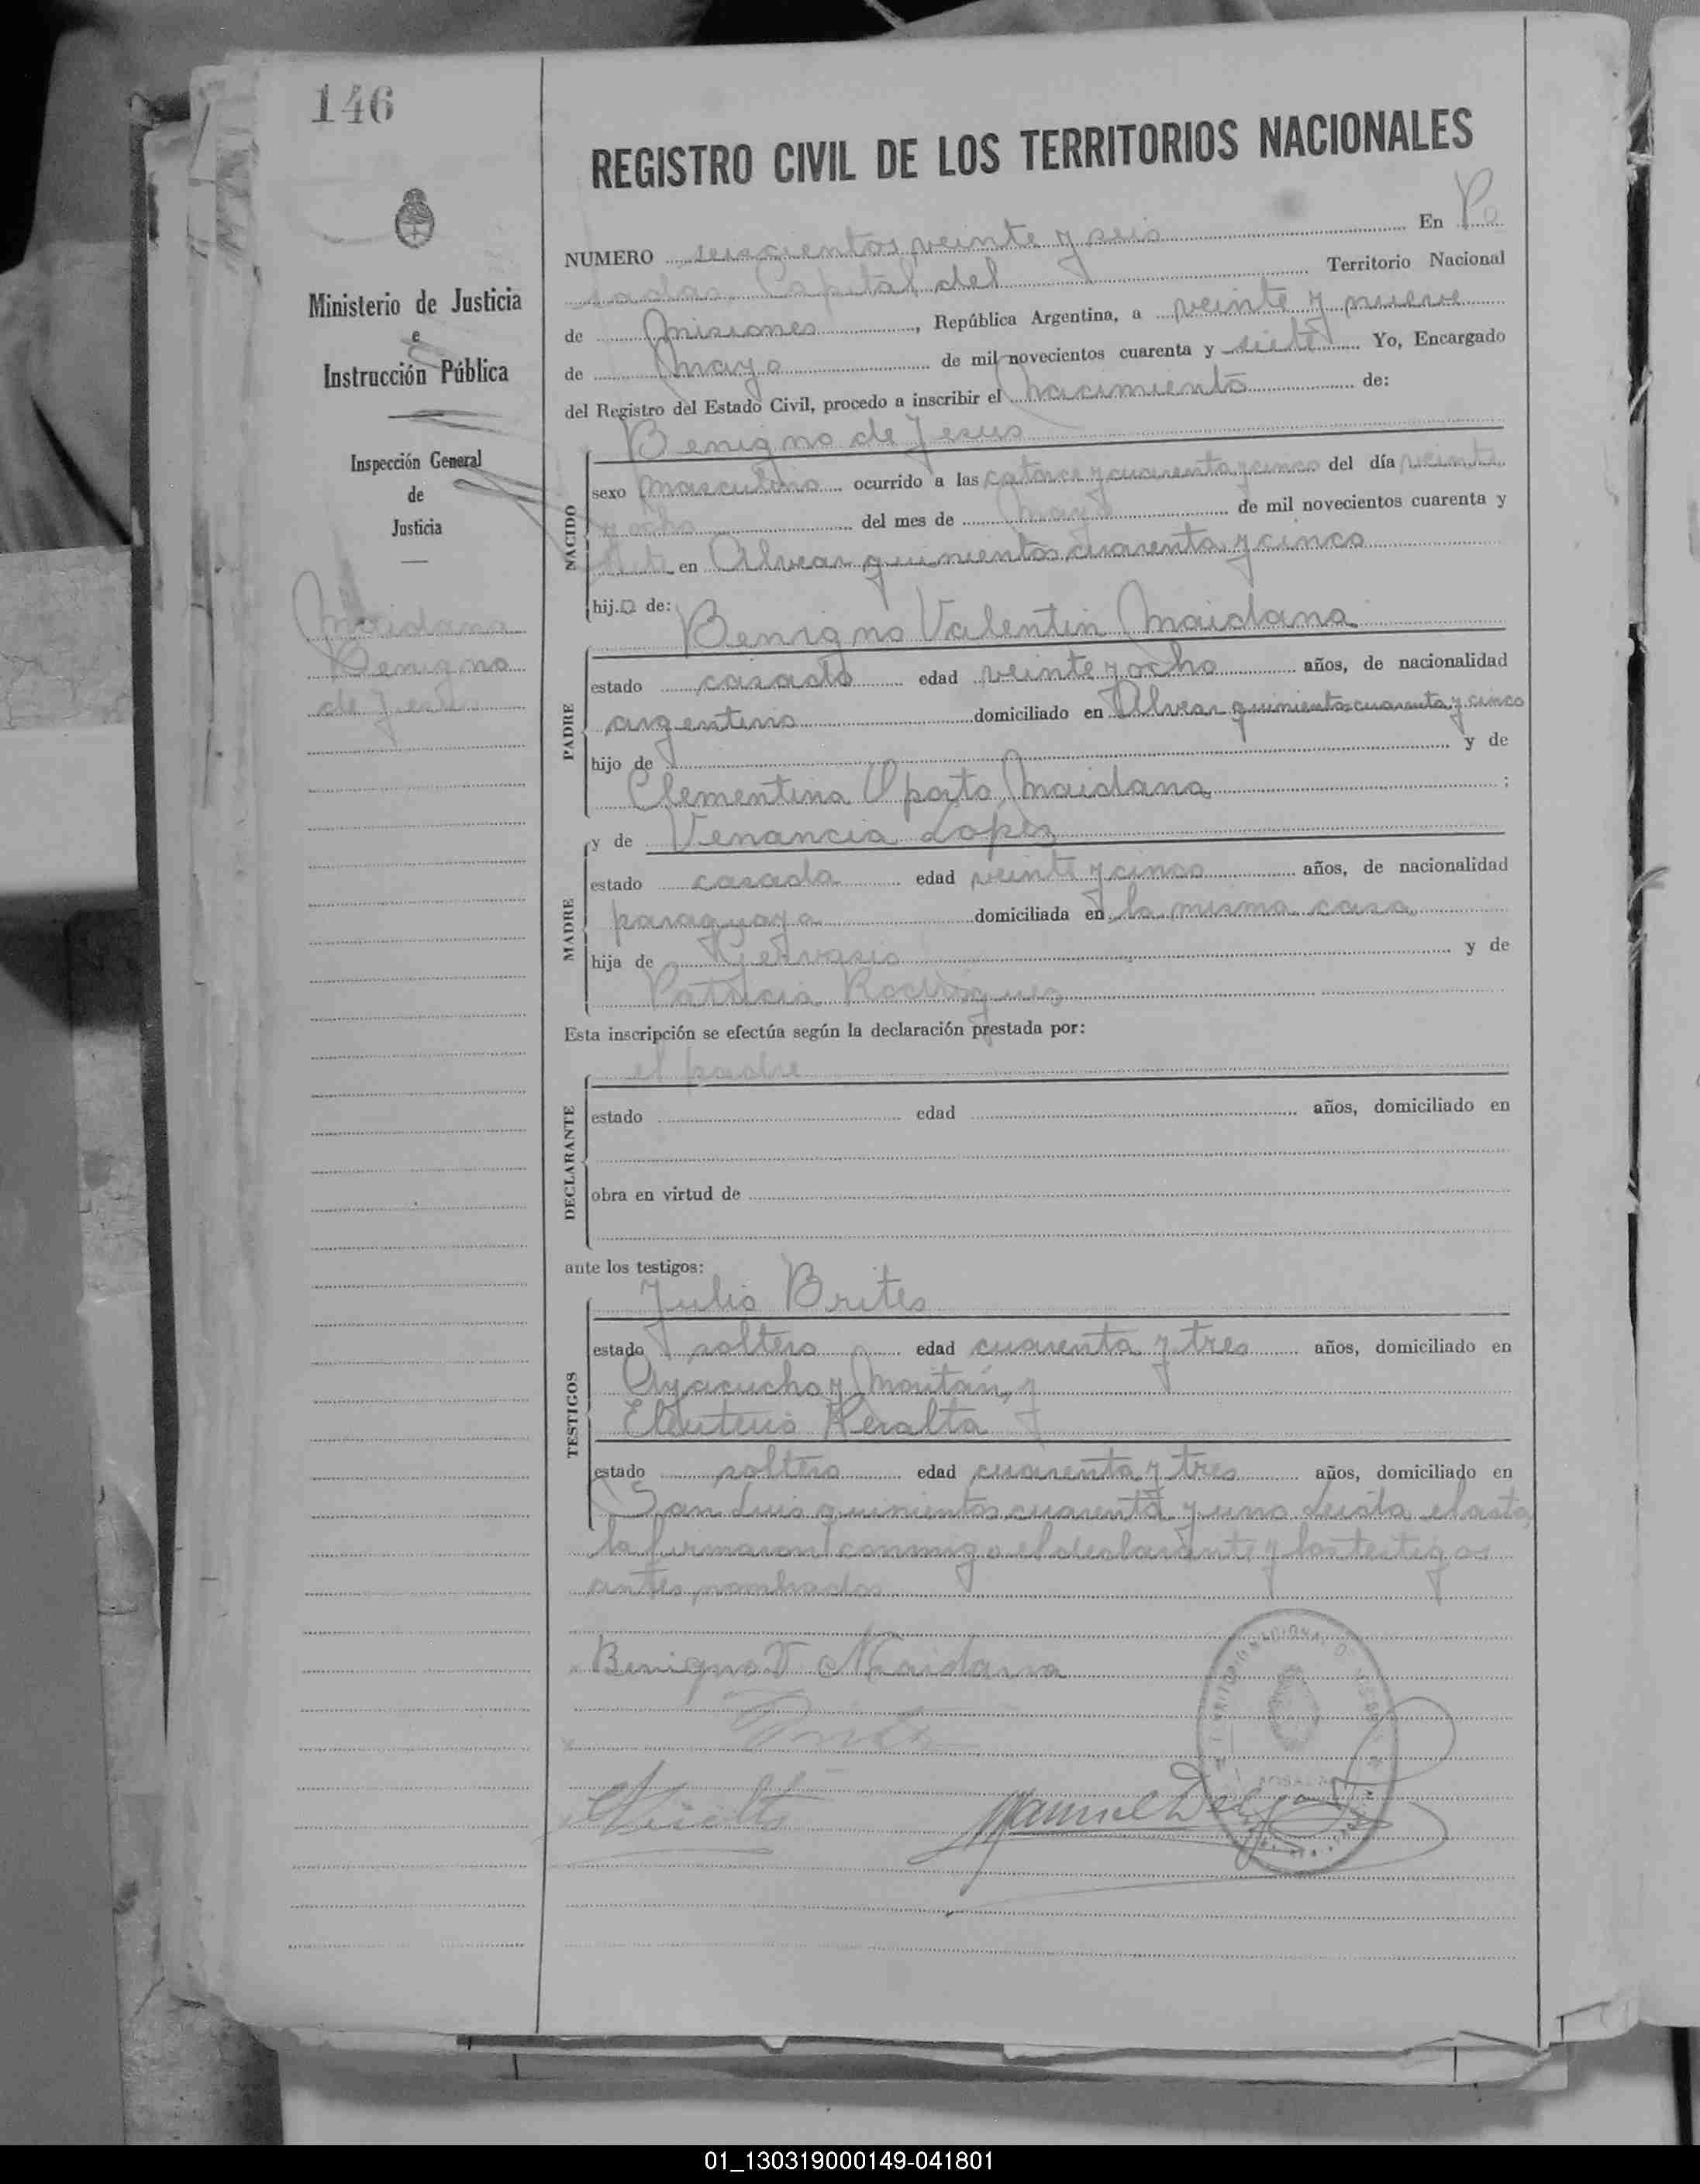 146
REGISTRO CIVIL DE LOS TERRITORIOS NACIONALES
Ministerio de Justicia
e
Instrucción Pública
Inspección General
de
Justicia
Maidana
Benigno
de Jesús
NUMERO seiscientos veinte y seis En Po
sadas Capital del Territorio Nacional
de Misiones, República Argentina, a veinte y nueve
de Mayo de mil novecientos cuarenta y siete Yo, Encargado
del Registro del Estado Civil, procedo a inscribir el nacimiento de:
NACIDO
Benigno de Jesus
sexo masculino ocurrido a las catorce y cuarenta y cinco del día veinte
y ocho del mes de mayo de mil novecientos cuarenta y
siete en Alvear quinientos cuarenta y cinco
hijo de:
Benigno Valentin Maidana
PADRE
estado casado edad veinte y ocho años, de nacionalidad
argentino domiciliado en Alvear quinientos cuarenta y cinco
hijo de y de
Clementina Oporto Maidana ;
MADRE
y de Venancia Lopez
estado casada edad veinte y cinco años, de nacionalidad
paraguaya domiciliada en la misma casa
hija de Gervasio y de
Patricia Rodrigues
Esta inscripción se efectúa según la declaración prestada por:
DECLARANTE
el padre
estado edad años, domiciliado en
obra en virtud de
ante los testigos:
TESTIGOS
Julio Brites
estado soltero edad cuarenta y tres años, domiciliado en
Ayacucho y
Eleuterio Peralta
estado soltero edad cuarenta y tres años, domiciliado en
San Luis quinientos cuarenta y uno Leida el acta,
la firmaron conmigo el declarante y los testigos
antes nombrados
Benigno V Maidana
Manuel
01_130319000149-041801